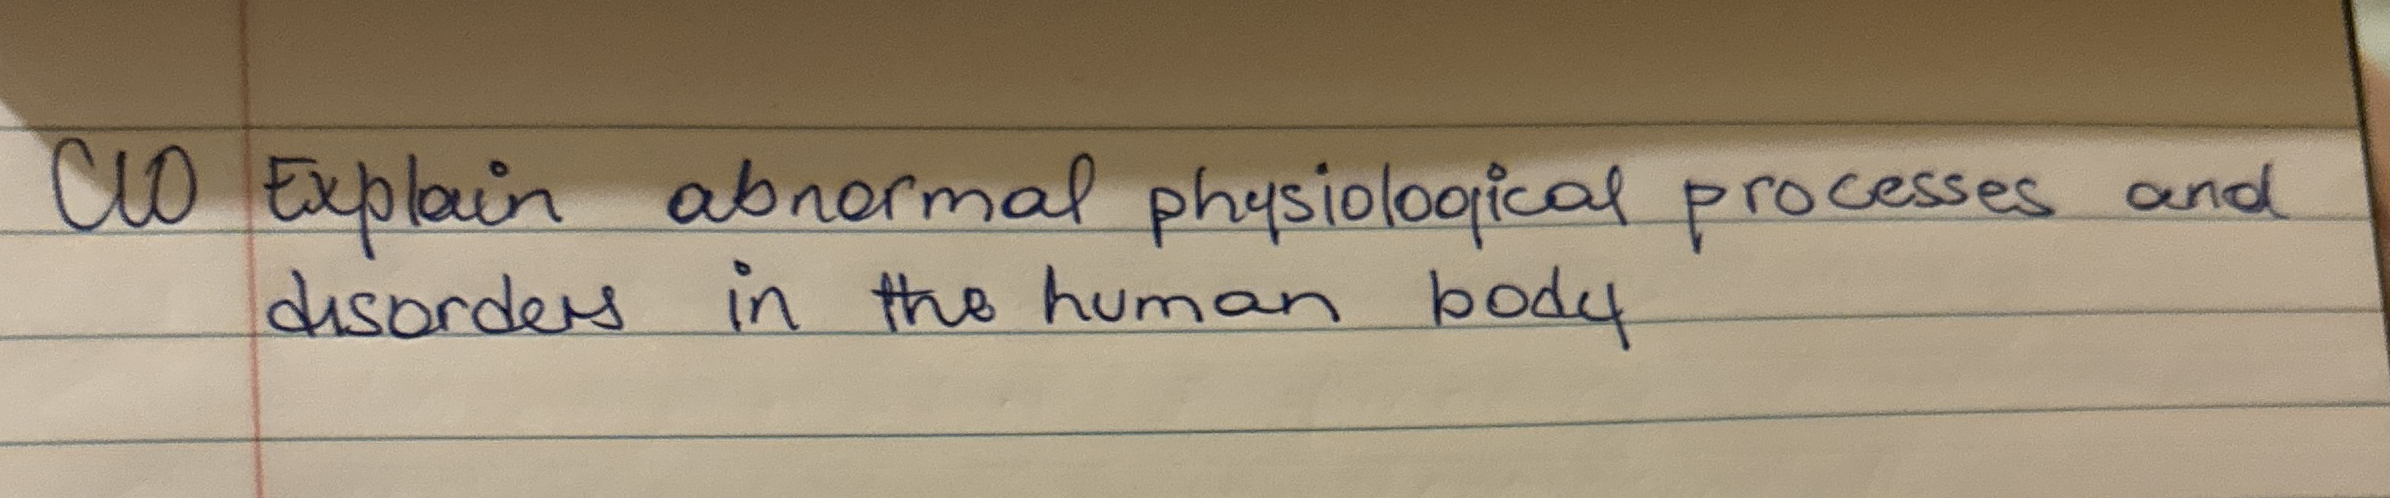 CLO Explain abnormal physiological processes and
disorders in the human body